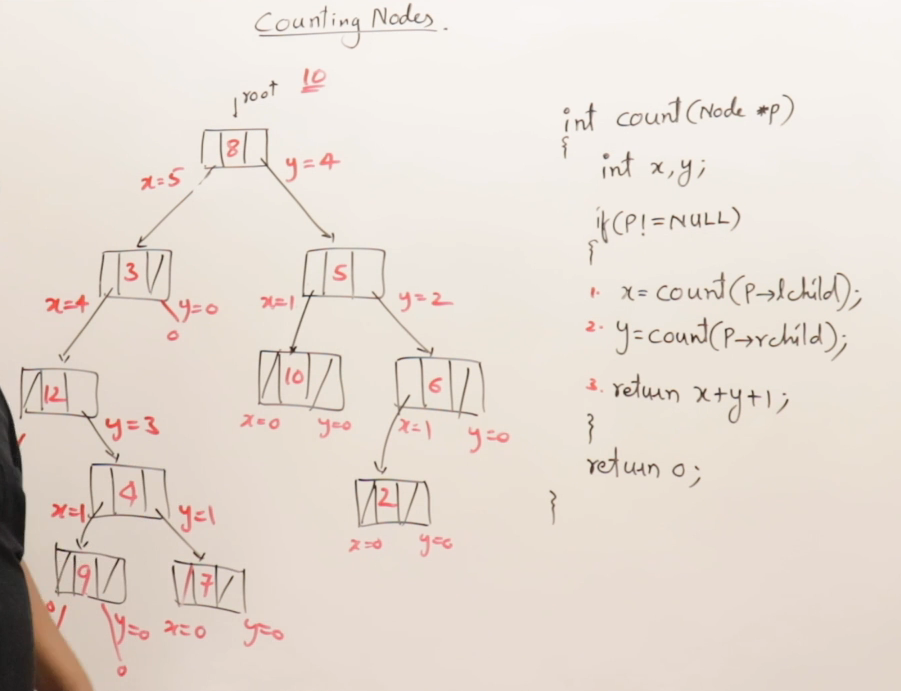 Counting Nodes.
root 10
8
x=5 y=4
3 5
x=4 y=0 x=1 y=2
0
12 10 6
y=3 x=0 y=0 x=1 y=0
4 2
x=1 y=1 x=0 y=0
9 7
0 y=0 x=0 y=0
0
int count(Node *P)
{
int x,y;
if(P!=NULL)
{
1. x=count(P→lchild);
2. y=count(P→rchild);
3. return x+y+1;
}
return 0;
}